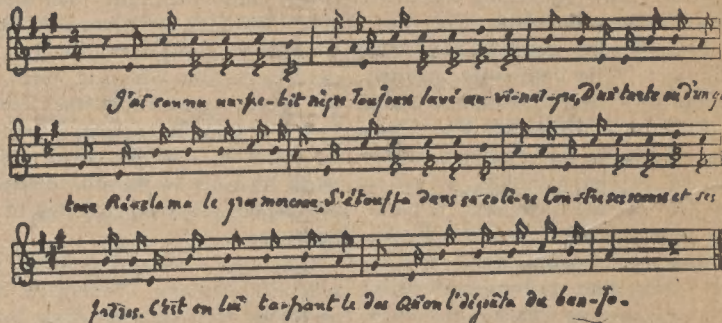 J'ai connu un pe-tit nègre Toujours lavé au vi-nai-gre, D'une tarte ou d'un g
teau Réclama le gros morceau, S'étouffa dans sa colè-re Contre ses sœurs et ses
frères. C'est en lui ta-pant le dos Qu'on l'dégoûta du ban-jo.